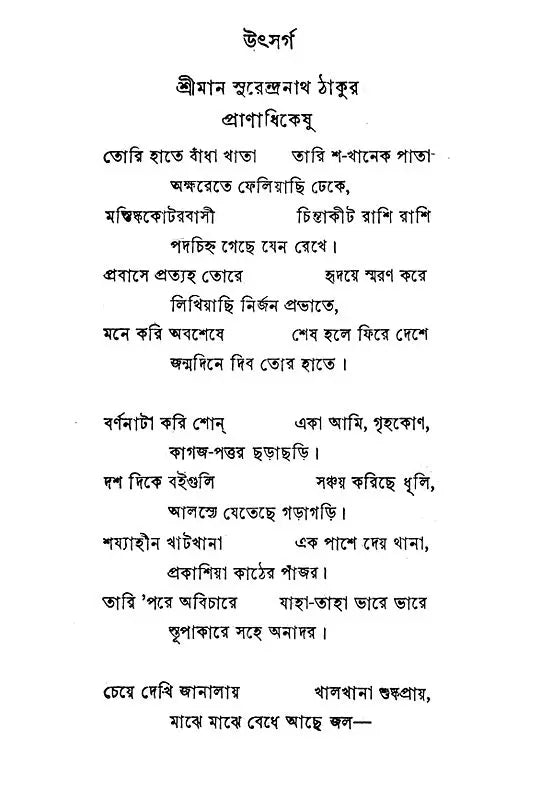 উৎসর্গ
শ্রীমান সুরেন্দ্রনাথ ঠাকুর
প্রাণাধিকেষু
তোরি হাতে বাঁধা খাতা তারি শ-খানেক পাতা
অক্ষরেতে ফেলিয়াছি ঢেকে,
মস্তিষ্ককোটরবাসী চিন্তাকীট রাশি রাশি
পদচিহ্ন গেছে যেন রেখে।
প্রবাসে প্রত্যহ তোরে হৃদয়ে স্মরণ করে
লিখিয়াছি নির্জন প্রভাতে,
মনে করি অবশেষে শেষ হলে ফিরে দেশে
জন্মদিনে দিব তোর হাতে।
বর্ণনাটা করি শোন্ একা আমি, গৃহকোণ,
কাগজ-পত্তর ছড়াছড়ি।
দশ দিকে বইগুলি সঞ্চয় করিছে ধূলি,
আলস্যে যেতেছে গড়াগড়ি।
শয্যাহীন খাটখানা এক পাশে দেয় থানা,
প্রকাশিয়া কাঠের পাঁজর।
তারি 'পরে অবিচারে যাহা-তাহা ভারে ভারে
স্তূপাকারে সহে অনাদর।
চেয়ে দেখি জানালায় খালখানা শুষ্কপ্রায়,
মাঝে মাঝে বেধে আছে জল—